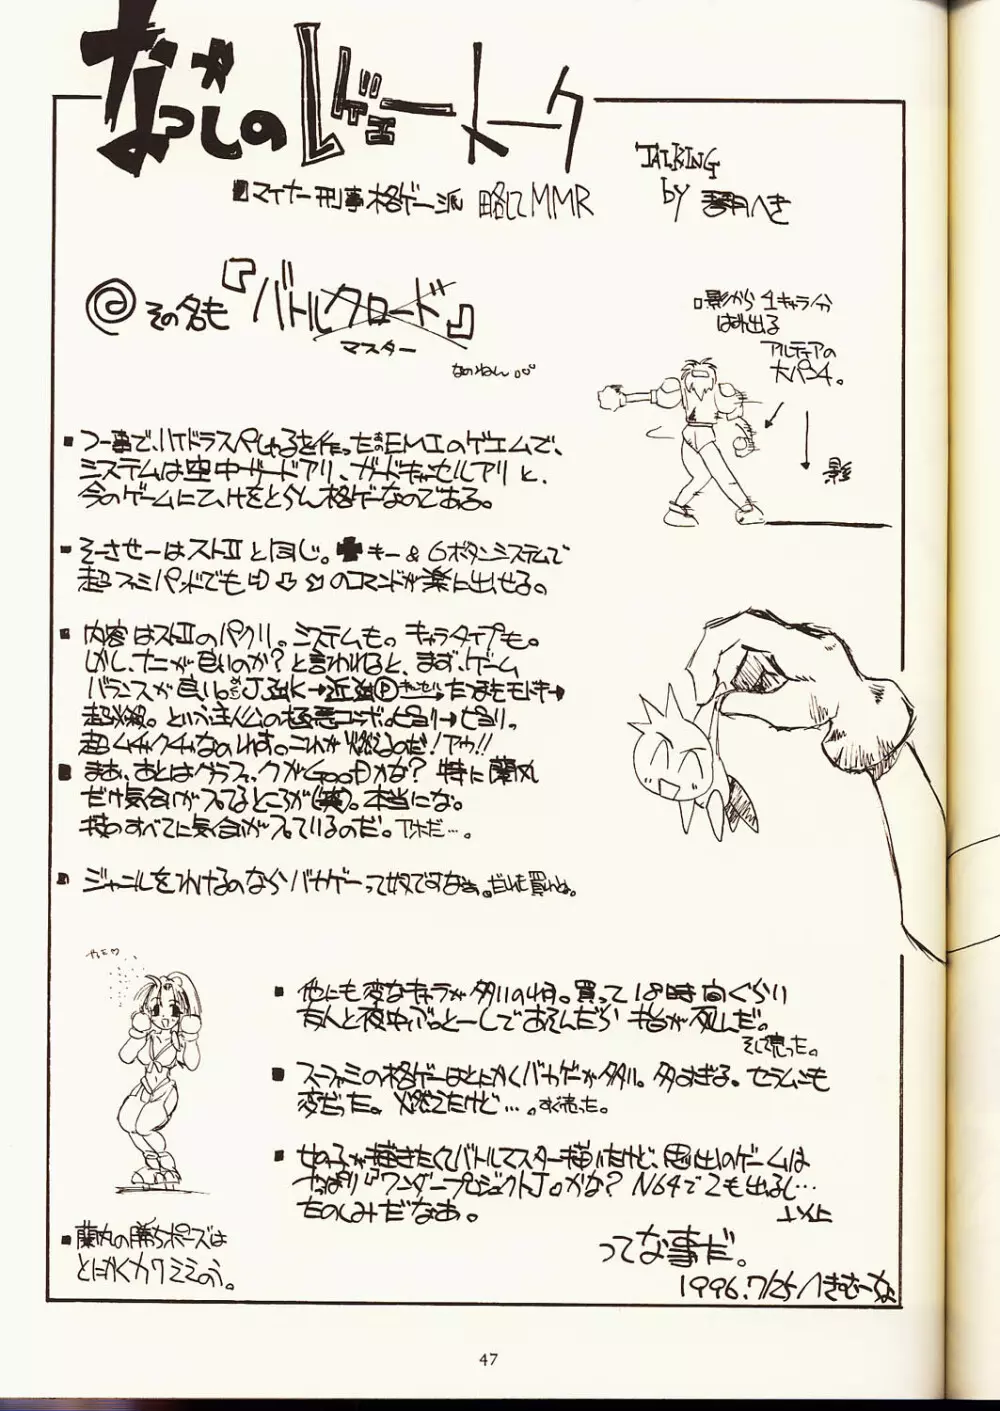 なつかしのレヴューートーク
マイナー刑事格ゲー派 略してMMR
TALKING
by 琴月へき
@その名も『バトルクロード』
マスター
なのねん…
影から1キャラ分
はみ出る
アルティアの
大パンチ。
影
つー事で、ハイドラスペしゃるを作ったEMIのゲェムで、
システムは空中ガードアリ、ガードキャンセルアリと、
今のゲームにひけをとらん格ゲーなのである。
そーさせーはストⅡと同じ。キー&6ボタンシステムで
超ファミパッドでも⇨⇩⬂のコマンドが楽に出せる。
内容はストⅡのパクリ。システムも。キャラタイプも。
しかし、ナニが良いのか?と言われると、まず、ゲーム
バランスが良い。J強K→近強Ⓟキャンセル→たつまきモドキ→
超必殺。という主人公の極悪コンボ。ピヨリ→ピヨリ。
超ムチャクチャなのれす。これが燃えるのだ!アゥ!!
まあ、あとはグラフィックがGOODかな?特に蘭丸
だけ気合いが入ってるところが(笑)。本当にな。
技のすべてに気合が入っているのだ。アホだ…。
ジャンルをわけるのならバカゲーって奴ですなぁ。
他にも変なキャラが多いのね。買って18時間ぐらい
友人と夜中ぶっとーしであそんだら 本台が死んだ。
そして売った。
スーファミの格ゲーはとにかくバカゲーが多い。多すぎる。セラムンも
変だった。燃えたけど…。すぐ売った。
女の子が描きたくてバトルマスター描いたけど、思い出のゲームは
やっぱり『ワンダープロジェクトJ』かな?N64で2も出るし…
たのしみだなあ。
以上
ってな事だ。
1996.7/25 へきむーな
蘭丸の勝ちポーズは
とにかくカワミミのう。
47